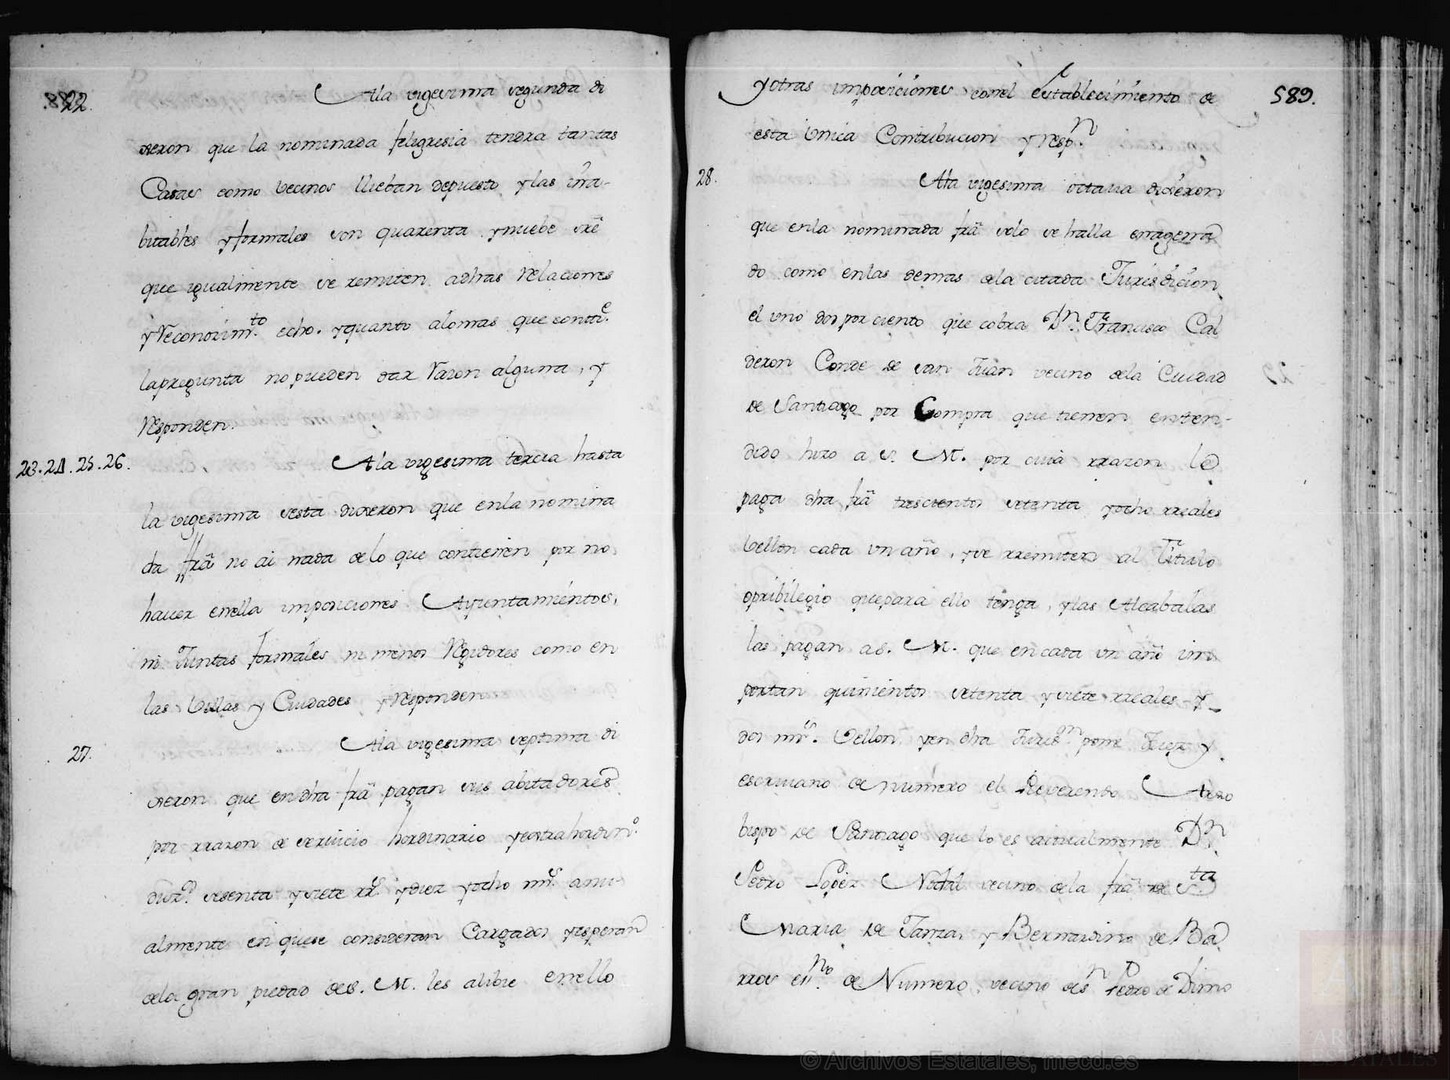 22.
Ala vigesima segunda di
xeron que la nominada feligresia tendra tantas
Casas como vecinos llieban depuesto, y las inha-
bitables y formales son quarenta y nuebe sre
que igualmente se remiten adhas Relaciones
y Reconozim.to echo. y quanto alomas que conti.e
la pregunta no pueden dar Razon alguna, y
Responden.
23. 24. 25. 26.
Ala vigesima tercia hasta
la vigesima sesta dixeron que enla nomina
da frã no ai nada de lo que contienen por no
haver enella imposiciones Ayuntamientos,
ni Juntas formales ni menos Regidores como en
las Villas y Ciudades y Responden
27.
Ala vigesima septima di
xeron que en dha frã pagan sus abitadores
por rrazon de servicio hordinario y extrahordin.o
sesenta y siete rr.s y diez y ocho mr.s anu-
almente en quese consideran Cargados y esperan
dela gran piedad de S. M. les alibie enello
589.
y otras imposiciones conel establecimiento de
esta Unica Contribucion y resp.n
28.
Ala vigesima octava dixeron
que enla nominada frã solo se halla enagena
do como enlas demas dela citada Jurisdicion
el uno dos por ciento que cobra D.n Francisco Cal
deron Conde de san Juan vecino dela Ciudad
de Santiago por Compra que tienen enten-
dido hizo a S. M. por cuia rrazon le
paga dha frã trescientos setenta y ocho rreales
vellon cada un año, y se rremiten al Titulo
o pribilegio que para ello tenga, y las Alcabalas
las pagan a S. M. que en cada un año im
portan quinientos setenta y siete rreales y
dos mr.s Vellon y en dha Juris.on pone Juez y
escrivano de numero el Reverendo Arzo
bispo de Santiago que lo es actualmente D.n
Pedro Lopez Nodal vecino dela frã de S.ta
Maria de Janza, y Bernardino de Ba
rros es.no de Numero vecino de S.n Pedro de Dimo
© Archivos Estatales, mecd.es
ARCHIVOS
ESTATALES